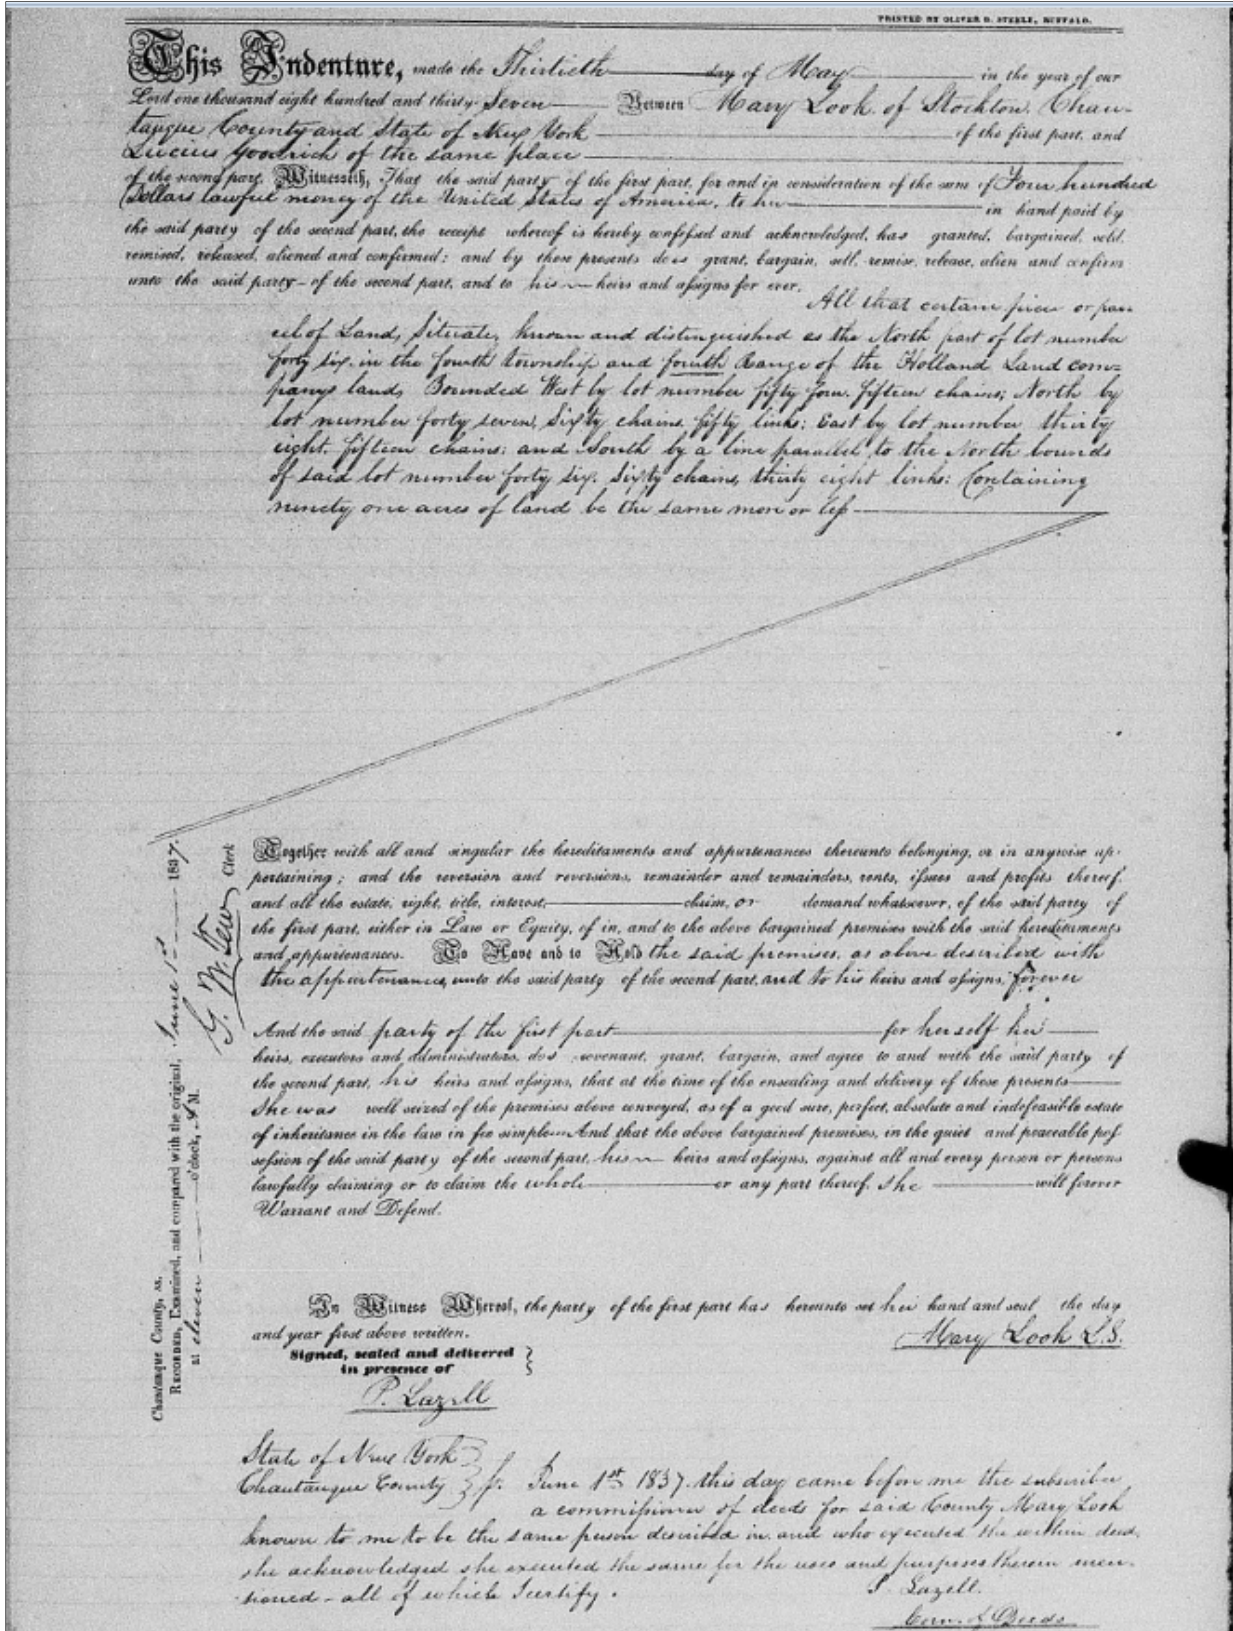 PRINTED BY OLIVER D. STEELE, BUFFALO.
This Indenture, made the Thirtieth day of May in the year of our
Lord one thousand eight hundred and thirty Seven Between Mary Look of Stockton, Chau-
tauque County and State of New York of the first part, and
Lucius Goodrich of the same place
of the second part, Witnesseth, That the said party of the first part, for and in consideration of the sum of Four hundred
Dollars lawful money of the United States of America, to her in hand paid by
the said party of the second part, the receipt whereof is hereby confessed and acknowledged, has granted, bargained, sold,
remised, released, aliened and confirmed; and by these presents does grant, bargain, sell, remise, release, alien and confirm
unto the said party of the second part, and to his heirs and assigns for ever.
All that certain piece or par-
cel of Land, Situate, known and distinguished as the North part of lot number
forty six. in the fourth township and fourth Range of the Holland Land com=
panys land, Bounded West by lot number fifty four. fifteen chains; North by
lot number forty seven, Sixty chains, fifty links: East by lot number thirty
eight. fifteen chains: and South by a line parallel to the North bounds
of said lot number forty six. Sixty chains, thirty eight links: Containing
ninety one acres of land be the same more or less
Together with all and singular the hereditaments and appurtenances thereunto belonging, or in anywise ap-
pertaining; and the reversion and reversions, remainder and remainders, rents, issues and profits thereof,
and all the estate, right, title, interest, claim, or demand whatsoever, of the said party of
the first part, either in Law or Equity, of in, and to the above bargained premises with the said hereditaments
and appurtenances. To Have and to Hold the said premises, as above described with
the appurtenances, unto the said party of the second part, and to his heirs and assigns, forever
And the said party of the first part for herself her
heirs, executors and administrators, does covenant, grant, bargain, and agree to and with the said party of
the second part, his heirs and assigns, that at the time of the ensealing and delivery of these presents
She was well seized of the premises above conveyed, as of a good sure, perfect, absolute and indefeasible estate
of inheritance in the law in fee simple And that the above bargained premises, in the quiet and peaceable pos-
session of the said party of the second part, his heirs and assigns, against all and every person or persons
lawfully claiming or to claim the whole or any part thereof, She will forever
Warrant and Defend.
Chautauque County, ss.
RECORDED, Examined, and compared with the original, June 1st 1837.
at eleven o'clock, A M.
G. W. Tew Clerk
In Witness Whereof, the party of the first part has hereunto set her hand and seal the day
and year first above written.
Mary Look L.S.
Signed, sealed and delivered
in presence of
P. Lazell
State of New York
Chautauque County ss. June 1st 1837. this day came before me the subscriber
a commissioner of deeds for said County Mary Look
known to me to be the same person described in and who executed the within deed,
she acknowledged she executed the same for the uses and purposes therein men-
tioned - all of which I certify.
P. Lazell.
Com. of Deeds